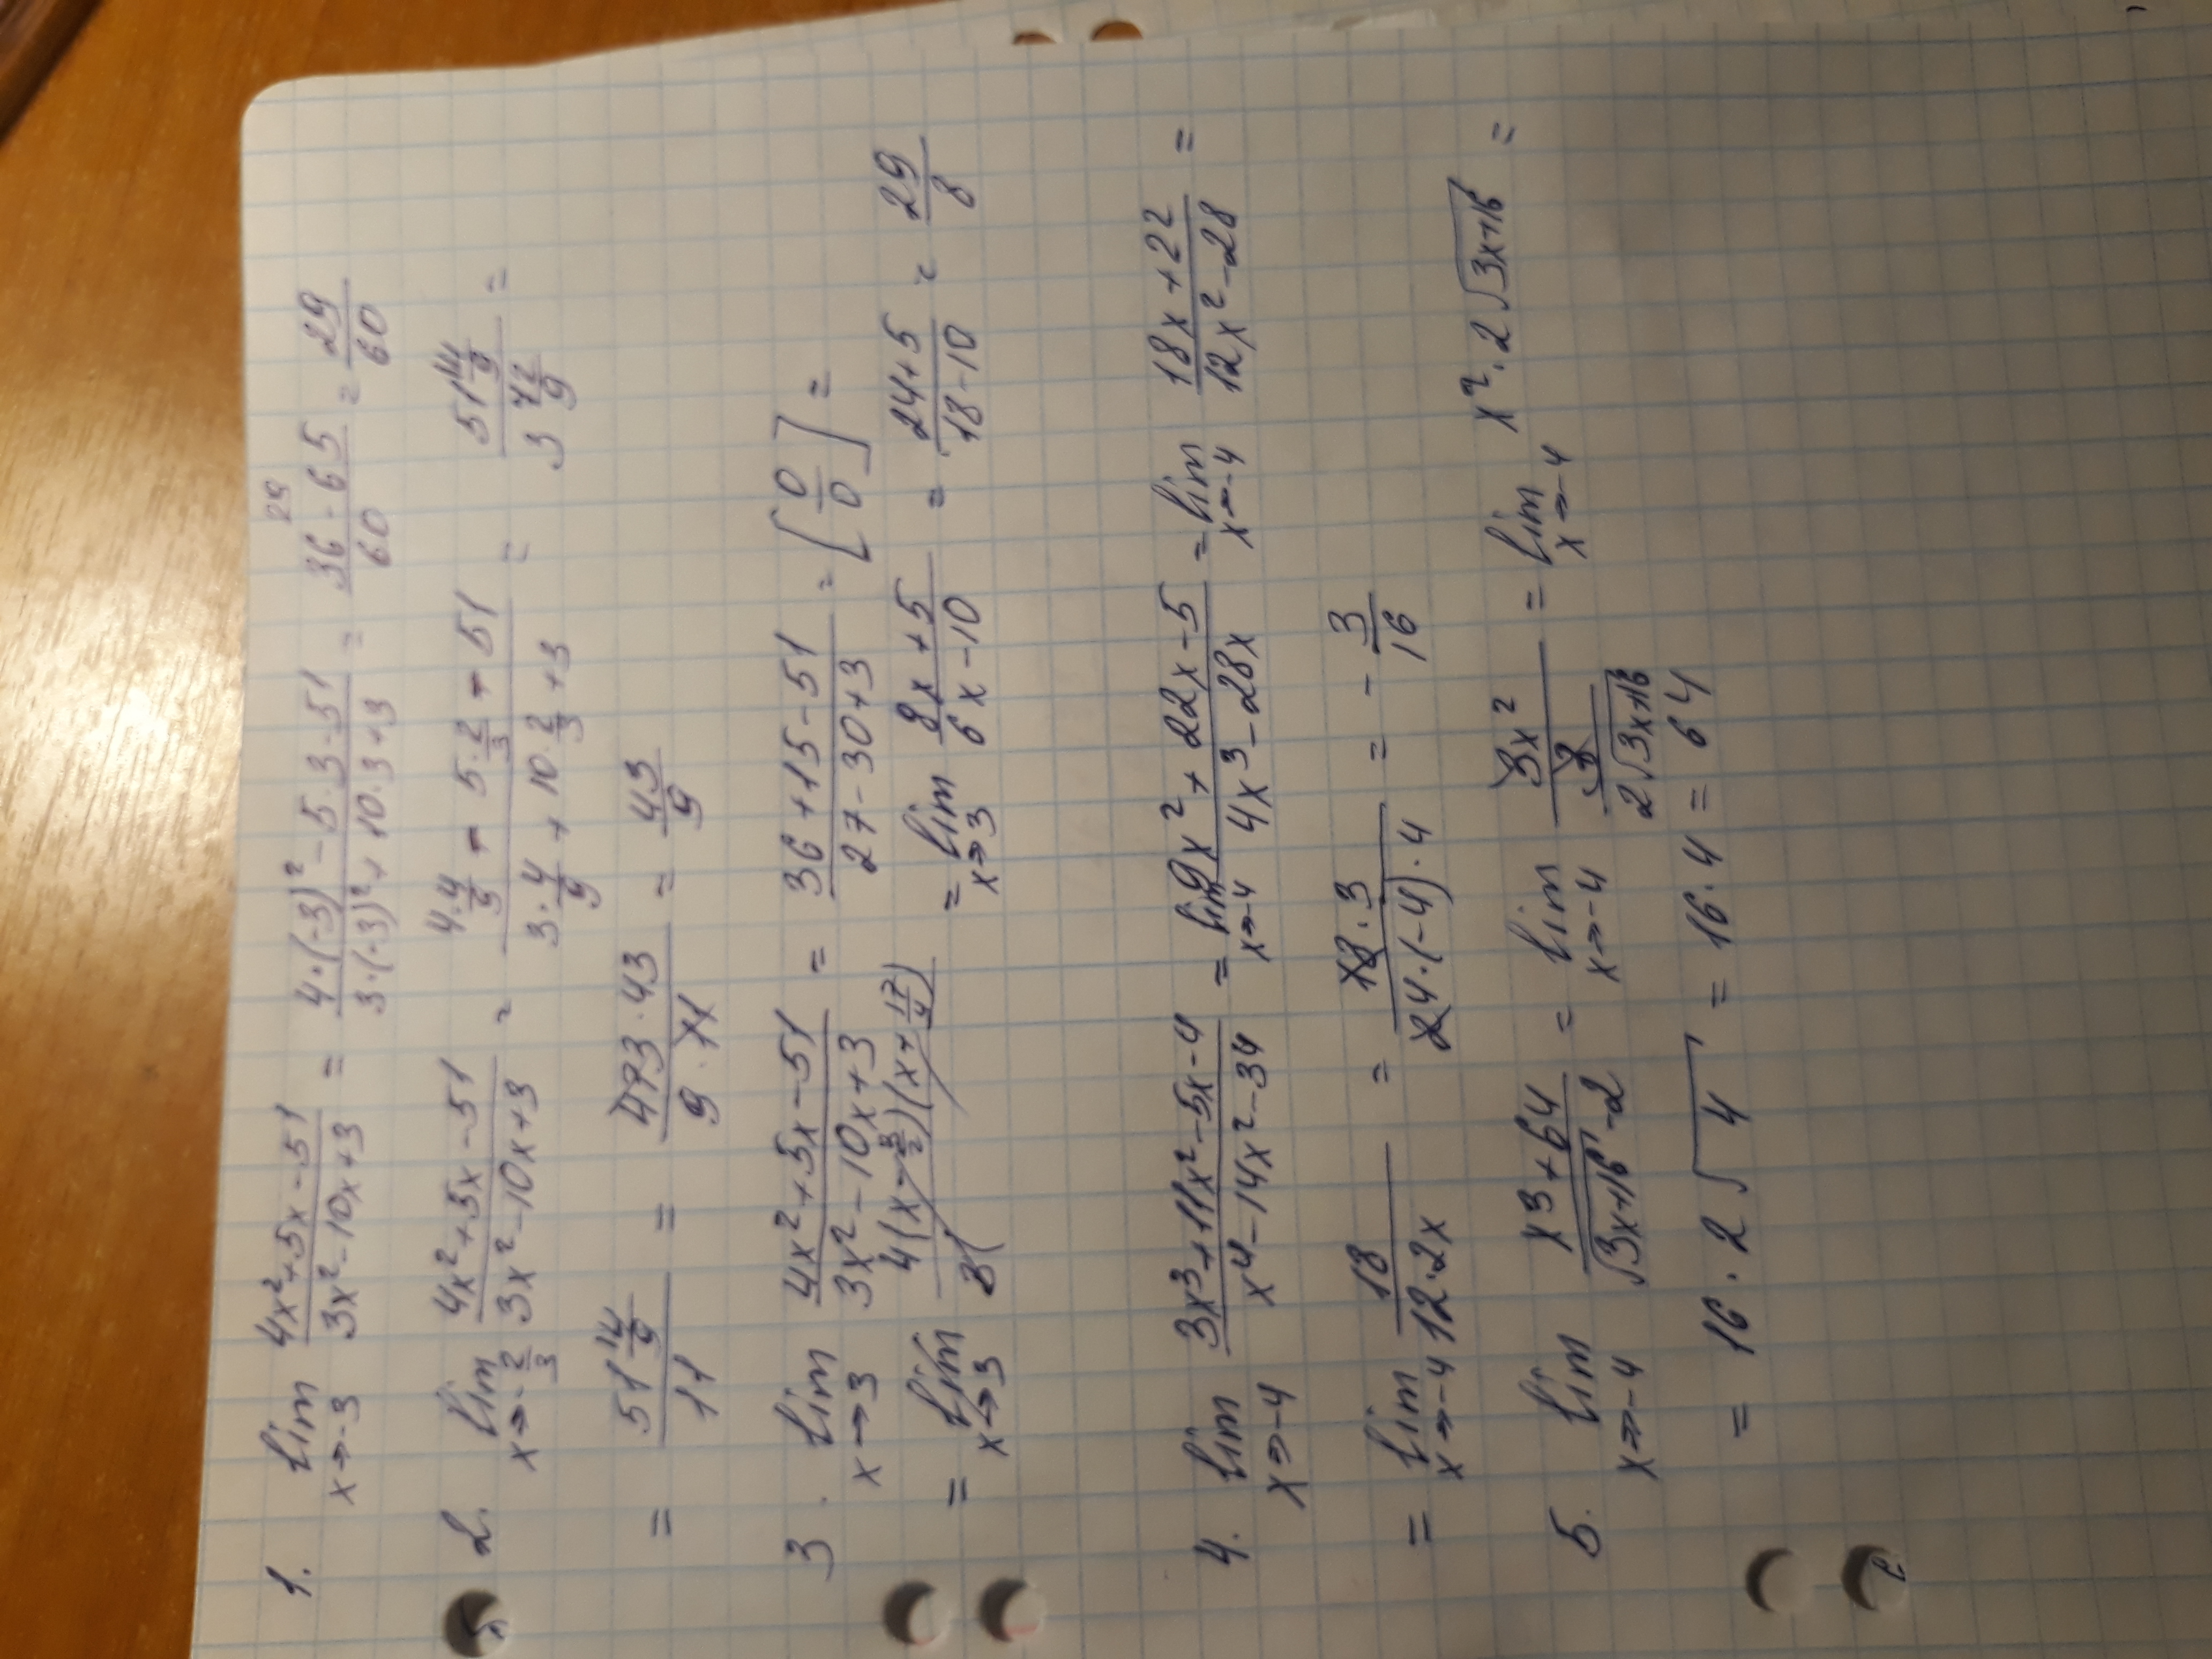 1. lim x→-3 (4x²+5x-51)/(3x²-10x+3) = (4·(-3)²-5·3-51)/(3·(-3)²+10·3+3) = (36-65)/60 = 29/60
29
2. lim x→-2/3 (4x²+5x-51)/(3x²-10x+3) = (4·4/9-5·2/3-51)/(3·4/9+10·2/3+3) =
= = 43/9
3. lim x→3 (4x²+5x-51)/(3x²-10x+3) = (36+15-51)/(27-30+3) = [0/0] =
= lim x→3 = lim x→3 (8x+5)/(6x-10) = (24+5)/(18-10) = 29/8
4. lim x→-4 (3x³+11x²-5x-4)/(x⁴-14x²-34) = lim x→-4 (9x²+22x-5)/(4x³-28x) = lim x→-4 (18x+22)/(12x²-28) =
= lim x→-4 18/(12·2x) = (18·3)/(24·(-4)·4) = -3/16
5. lim x→-4 (x3+64)/(√(3x+16)-2) = lim x→-4 3x²/(3/(2√(3x+16))) = lim x→-4 x²·2√(3x+16) =
= 16·2√4 = 16·4 = 64